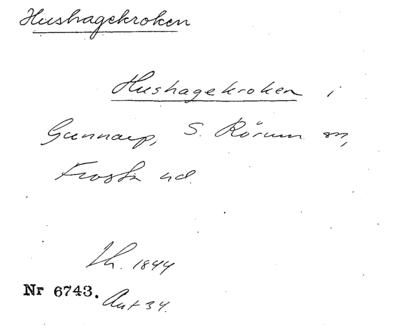 Hushagekroken
Hushagekroken i
Gunnarp, S. Rörum sn,
Frosta hd.
Lh. 1844
Nr 6743. Ant 34.